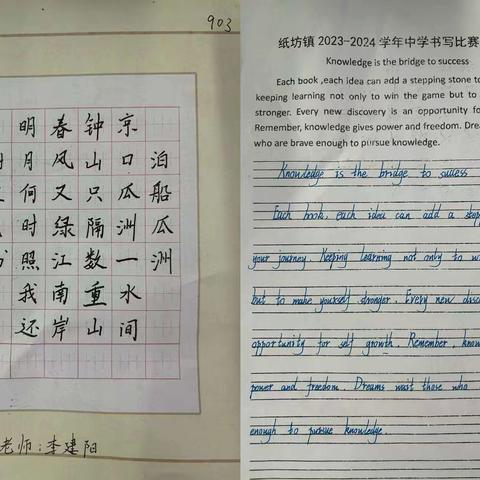 903
泊船瓜洲
京口瓜洲一水间
钟山只隔数重山
春风又绿江南岸
明月何时照我还
老师:李建阳
纸坊镇 2023-2024 学年中学书写比赛
Knowledge is the bridge to success
Each book ,each idea can add a stepping stone to
keeping learning not only to win the game but to
stronger. Every new discovery is an opportunity fo
Remember, knowledge gives power and freedom. Drea
who are brave enough to pursue knowledge.
Knowledge is the bridge to success
Each book, each idea can add a stepp
your journey. Keeping learning not only to wi
but to make yourself stronger. Every new disc
opportunity for self growth. Remember, know
power and freedom. Dreams wait those who
enough to pursue knowledge.